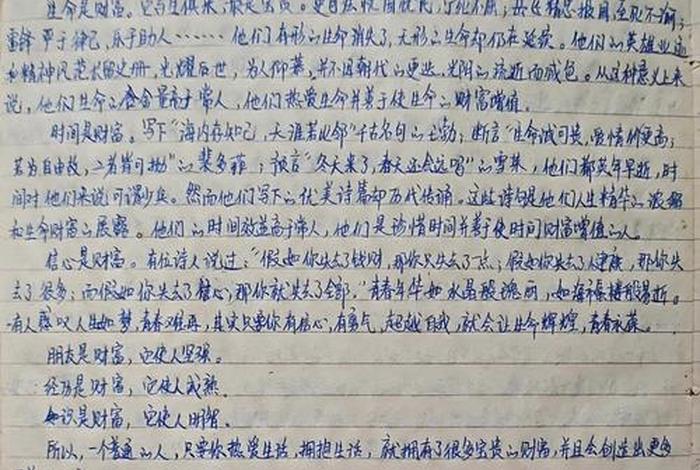 生命是财富。它与生俱来,最是宝贵。
雷锋严于律己,乐于助人……他们有形的生命消失了,无形的生命却仍在延续。他们的英雄业迹
和精神风范永留史册,光耀后世,为人仰慕,并不因朝代的更迭,光阴的流逝而减色。从这种意义上来
说,他们生命的含金量高于常人,他们热爱生命并善于使生命的财富增值。
时间是财富。写下“海内存知己,天涯若比邻”千古名句的王勃;断言“生命诚可贵,爱情价更高;
若为自由故,二者皆可抛”的裴多菲;预言“冬天来了,春天还会远吗”的雪莱,他们都英年早逝,时
间对他们来说可谓少矣。然而他们写下的优美诗篇却历代传诵。这些诗句是他们人生精华的浓缩
和生命财富的展露。他们的时间效益高于常人,他们是珍惜时间并善于使时间财富增值的人。
信心是财富。有位诗人说过:“假如你失去了钱财,那你只失去了一点;假如你失去了健康,那你失
去了很多;而假如你失去了信心,那你就失去了全部。”青春年华如水晶般瑰丽,如海市蜃楼般易逝。
有人感叹人生如梦,青春难再,其实只要你有信心,有勇气,超越自我,就会让生命辉煌,青春永葆。
朋友是财富,它使人坚强。
经历是财富,它使人成熟。
知识是财富,它使人明智。
所以,一个普通的人,只要你热爱生活,拥抱生活,就拥有了很多宝贵的财富,并且会创造出更多